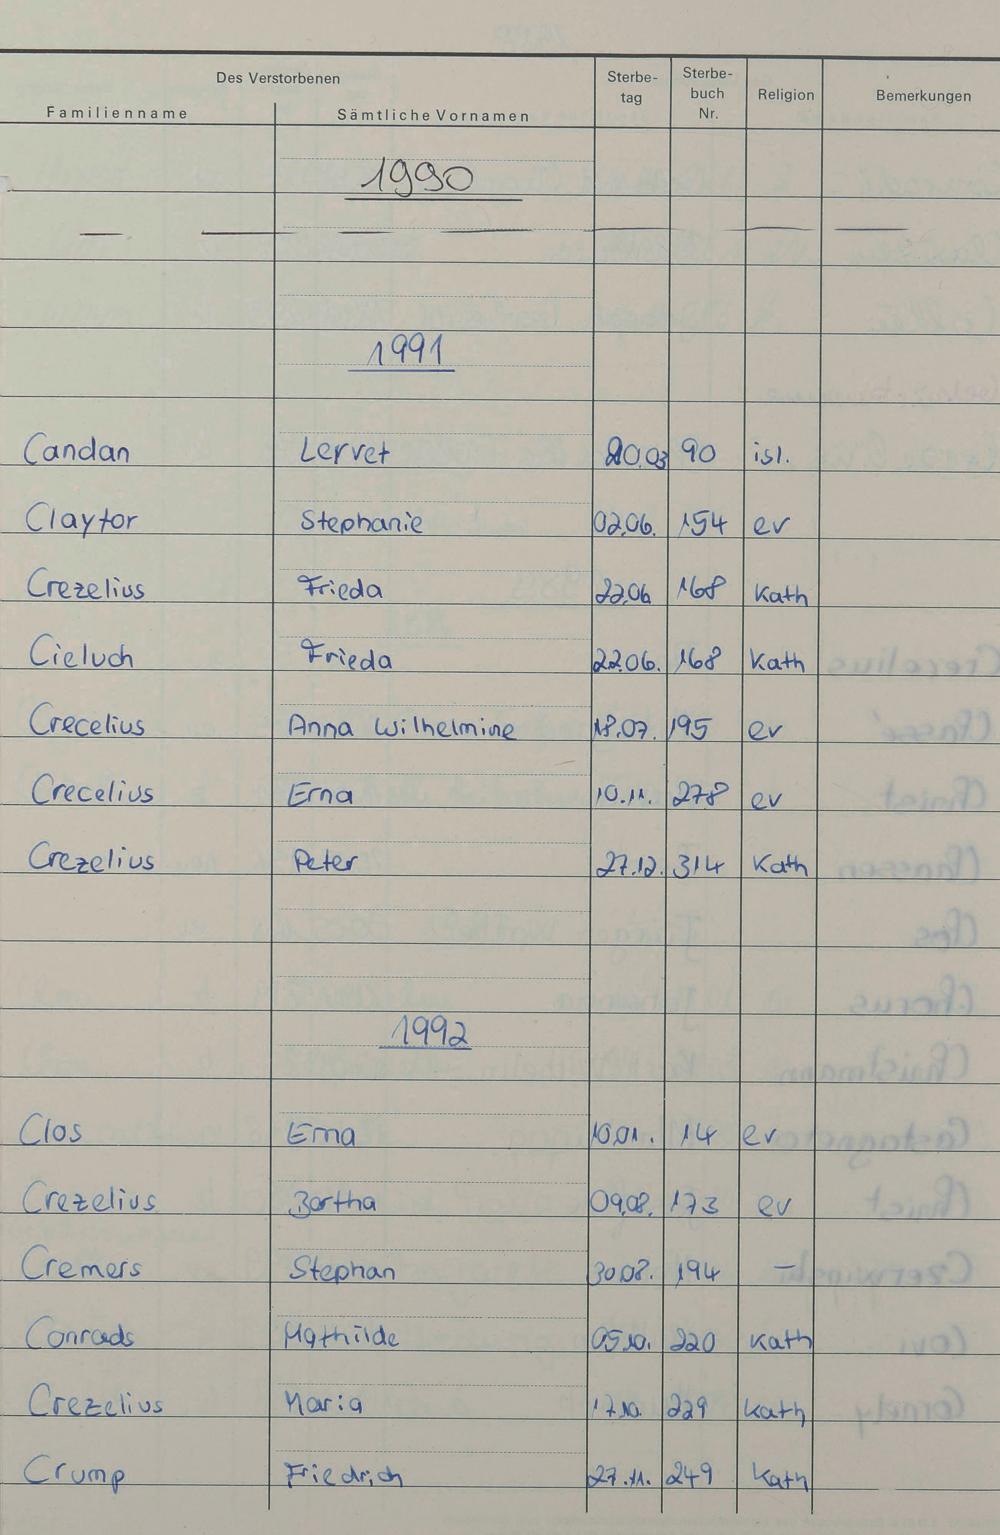 Des Verstorbenen
Familienname Sämtliche Vornamen Sterbe-tag Sterbe-buch Nr. Religion Bemerkungen
1990
— — — — — — — —
1991
Candan Lervet 20.03 90 isl.
Claytor Stephanie 02.06. 154 ev
Crezelius Frieda 22.06 168 Kath
Cieluch Frieda 22.06. 168 Kath
Crecelius Anna Wilhelmine 18.07. 195 ev
Crecelius Erna 10.11. 278 ev
Crezelius Peter 27.12. 314 Kath
1992
Clos Erna 10.01. 14 ev
Crezelius Bertha 09.08. 173 ev
Cremers Stephan 30.08. 194 —
Conrads Mathilde 05.10. 220 Kath
Crezelius Maria 17.10. 229 Kath
Crump Friedrich 27.11. 249 Kath